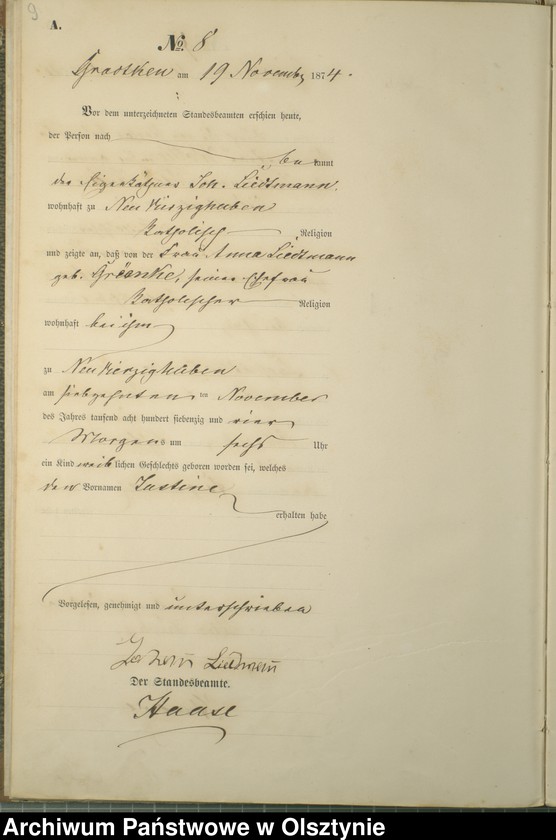 9
A.
№ 8
am 19 November 1874.
Vor dem unterzeichneten Standesbeamten erschien heute,
der Person nach
be kannt
der Eigenkäthner Joh. Liedtmann,
wohnhaft zu Neu Vierzighuben
Katholisch Religion
und zeigte an, daß von der Frau Anna Liedtmann
geb. seiner Ehefrau
Katholischer Religion
wohnhaft bei ihm
zu Neu Vierzighuben
am siebzehnten ten November
des Jahres tausend acht hundert siebenzig und vier
Morgens um sechs Uhr
ein Kind weib lichen Geschlechts geboren worden sei, welches
den Vornamen Justine
erhalten habe
Vorgelesen, genehmigt und unterschrieben
Johann
Der Standesbeamte.
Haase
Archiwum Państwowe w Olsztynie